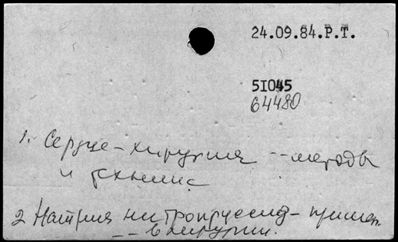 24.09.84.Р.Т.
51045
64480
1. Сердце-хирургия -- методы
и техника
2 Натрия нитропруссид - примен.
-- в хирургии.